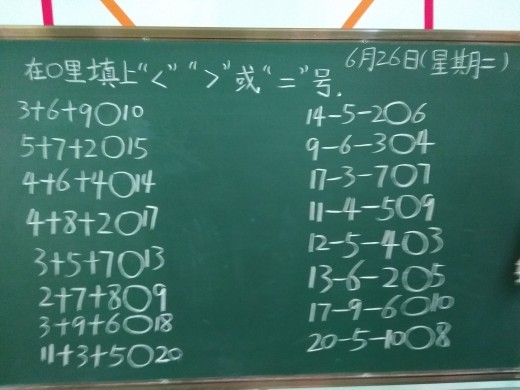 6月26日(星期二)
在○里填上“<”“>”或“=”号.
3+6+9○10
5+7+2○15
4+6+4○14
4+8+2○17
3+5+7○13
2+7+8○9
3+9+6○18
11+3+5○20
14-5-2○6
9-6-3○4
17-3-7○7
11-4-5○9
12-5-4○3
13-6-2○5
17-9-6○10
20-5-10○8